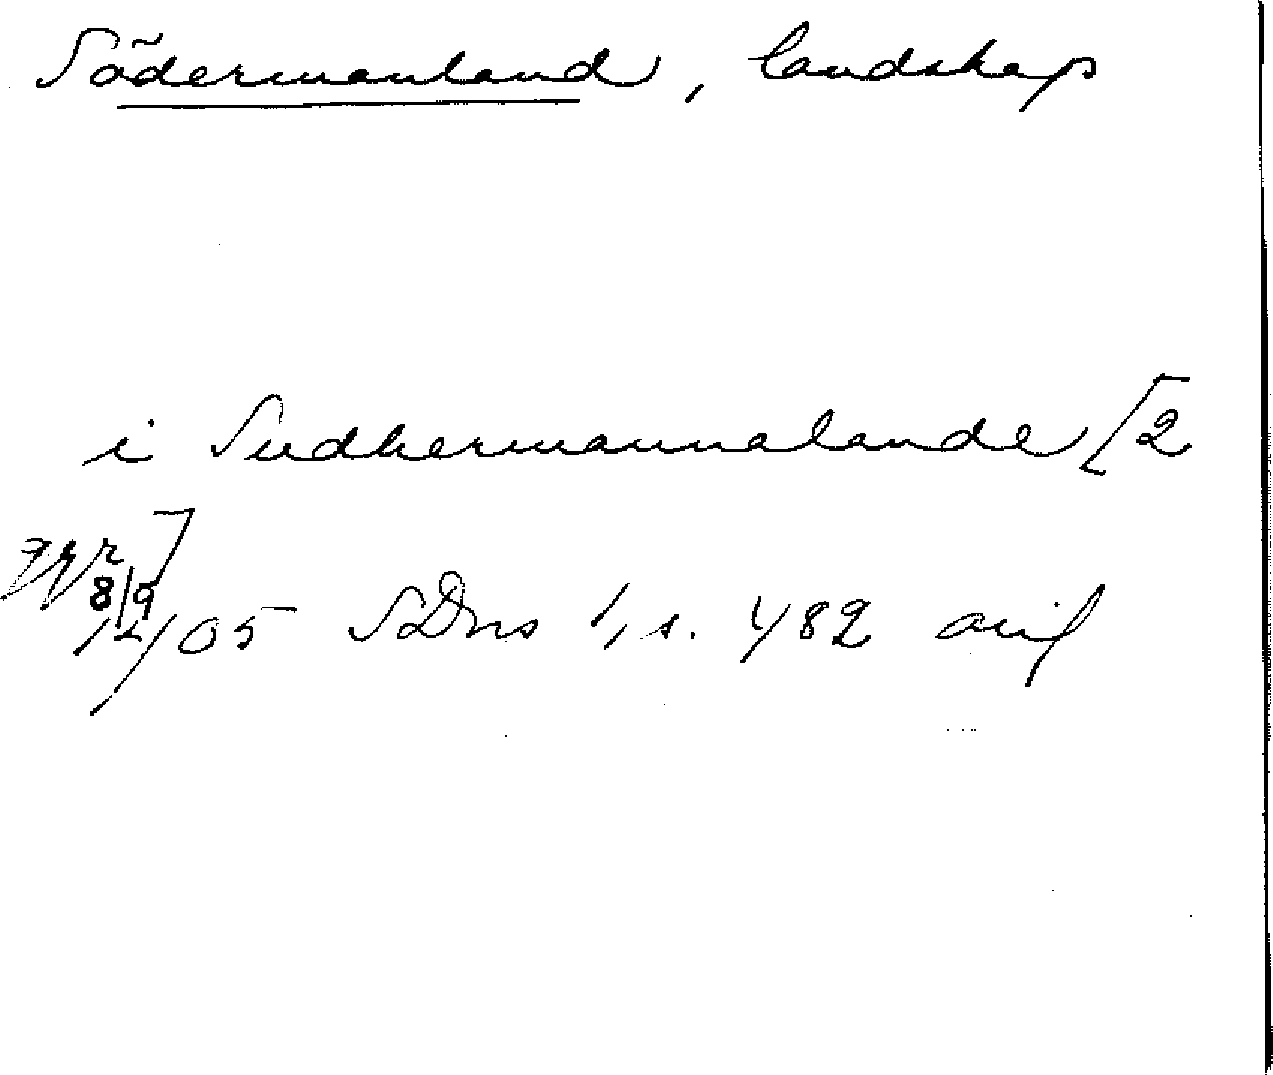 Södermanland, landskap
i Sudhermannalande [2
ggr]
8/9
14/05 SDns 1, s. 482 orig